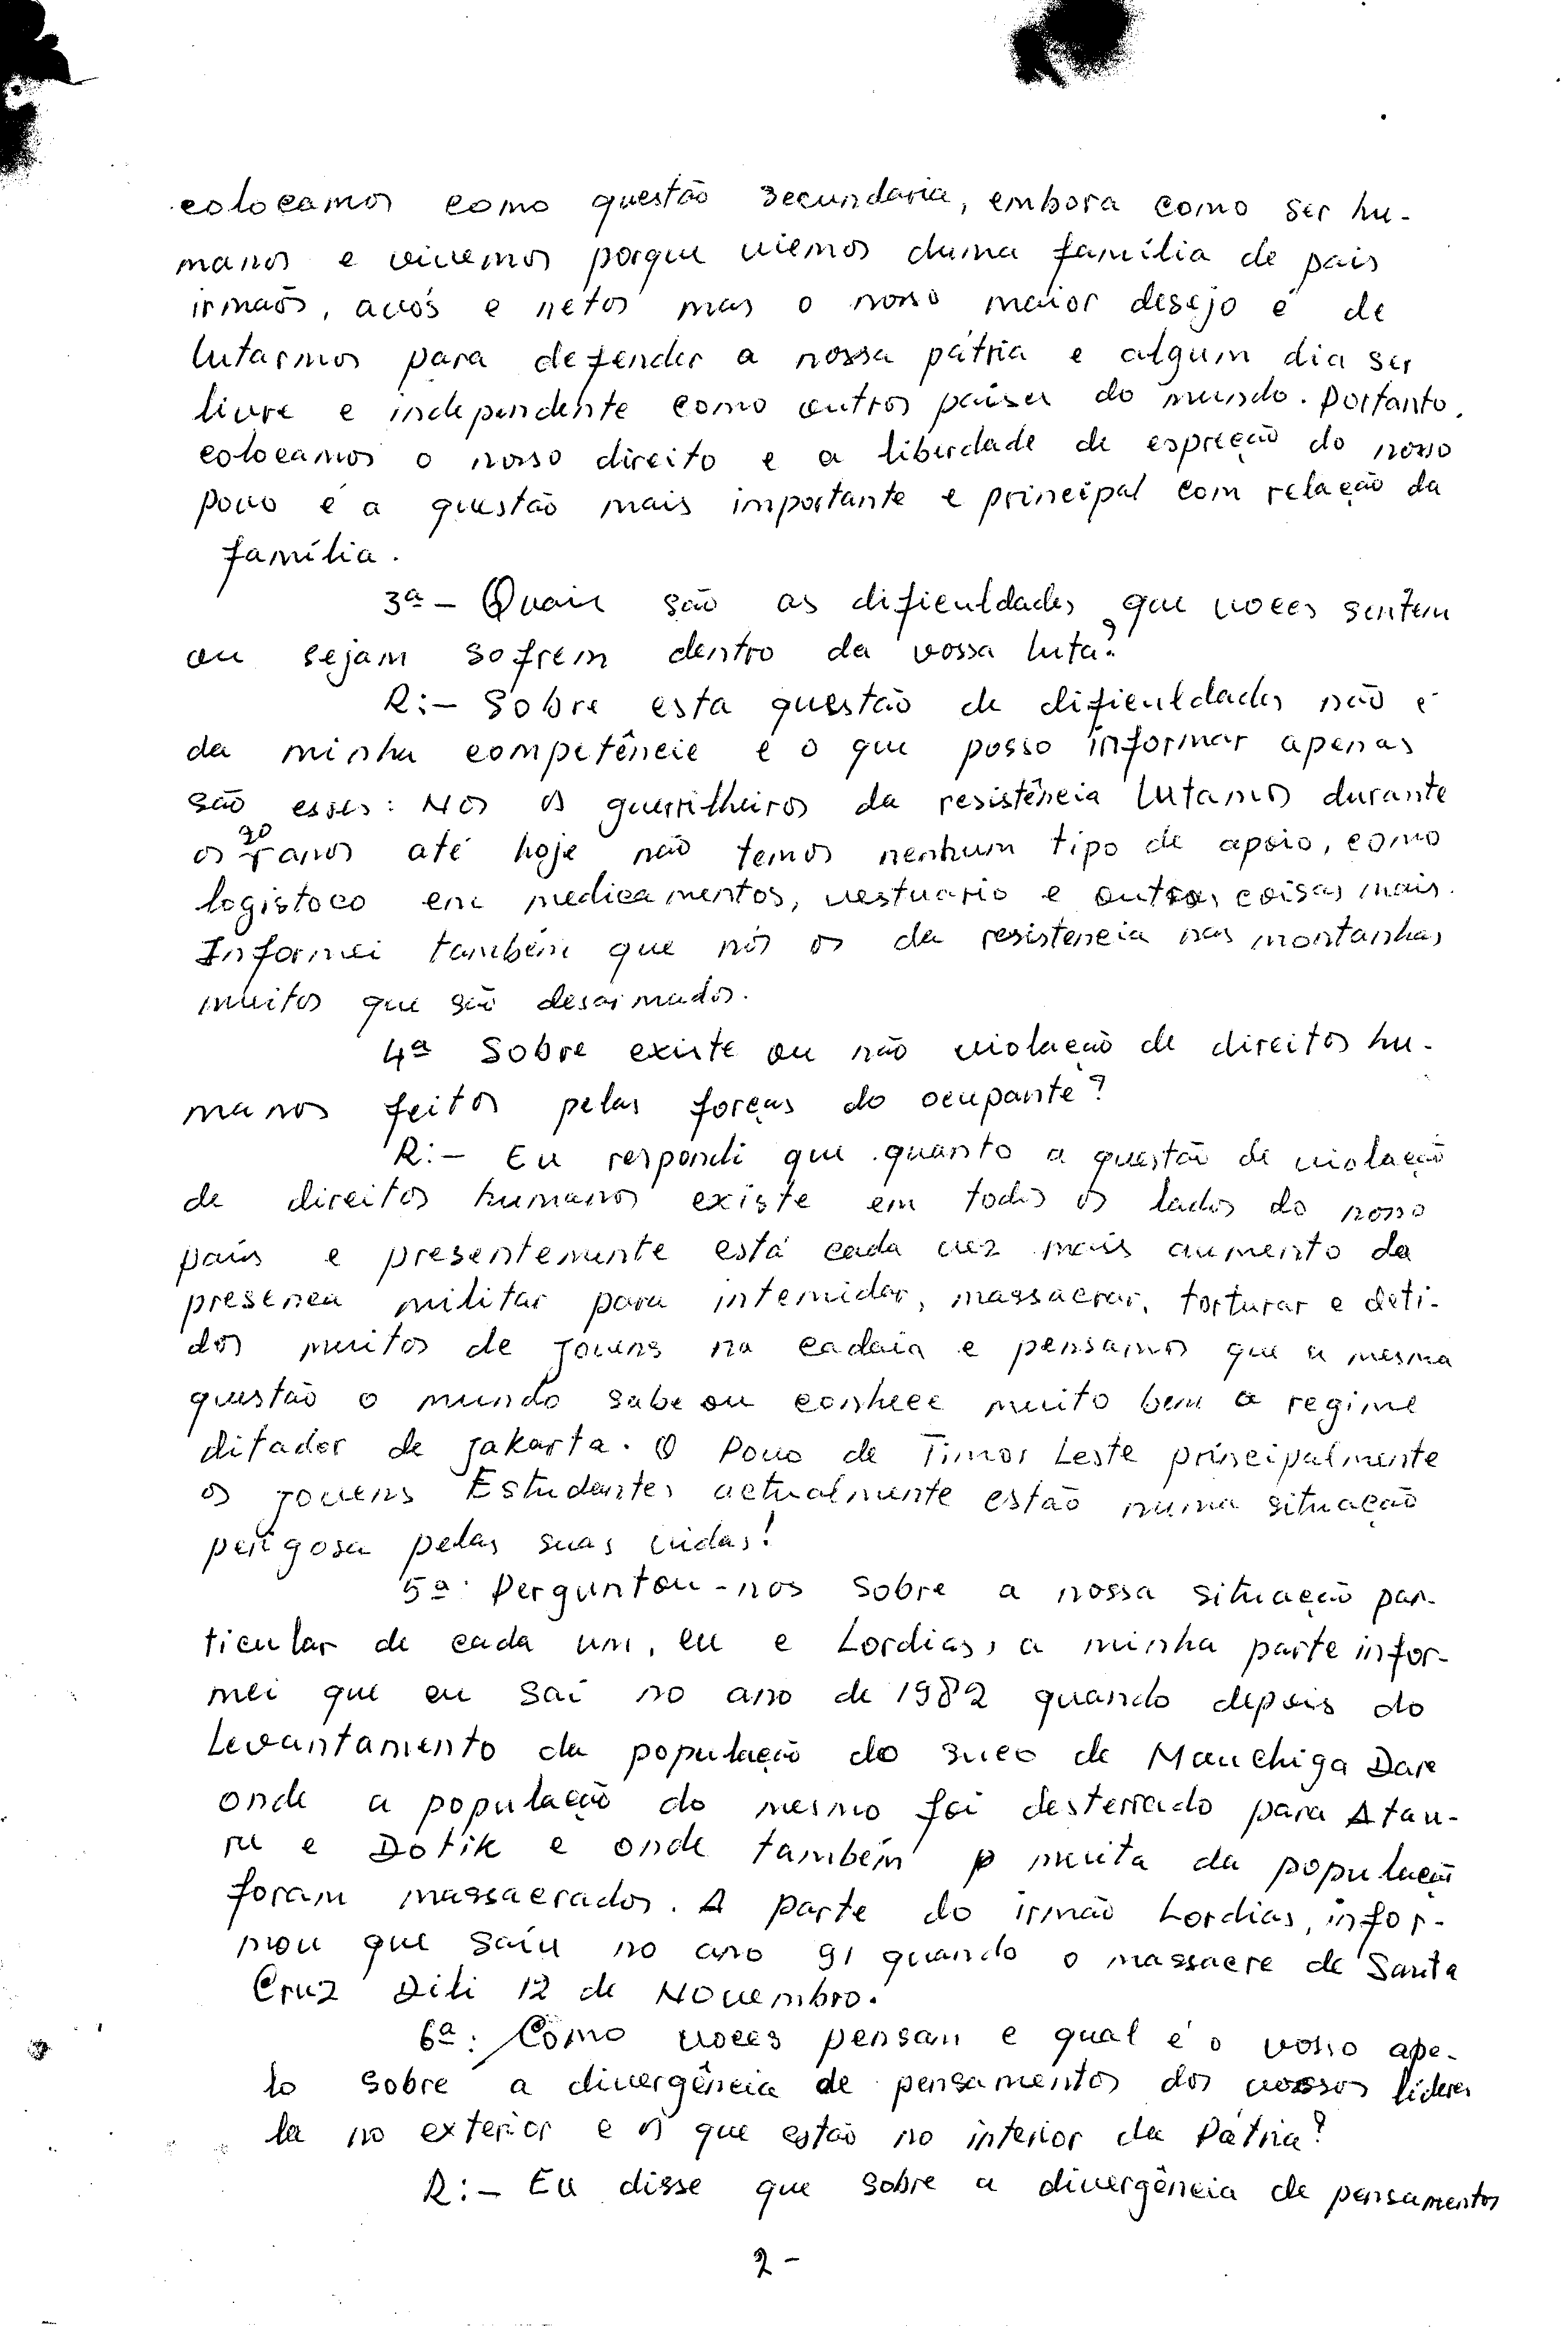 colocamos como questão secundaria, embora como ser hu-
manos e vivemos porque viemos duma família de pais
irmãos, avós e netos mas o nosso maior desejo é de
lutarmos para defender a nossa pátria e algum dia ser
livre e independente como outros países do mundo. Portanto,
colocamos o nosso direito e a liberdade de espreção do nosso
povo é a questão mais importante e principal com relação da
família.
3ª - Quais são as dificuldades que voces sentem
ou sejam sofrem dentro da vossa luta?
R:- Sobre esta questão de dificuldades não é
da minha competêncie e o que posso informar apenas
são esses: Nos os guerrilheiros da resistência lutamos durante
os 20 anos até hoje não temos nenhum tipo de apoio, como
logistoco em medicamentos, vestuario e outras coisas mais.
Informei também que nós os da resistencia nas montanhas
muitos que são desarmados.
4ª Sobre existe ou não violação de direitos hu-
manos feitos pelas forças do ocupante?
R:- Eu respondi que quanto a questão de violação
de direitos humanos existe em todos os lados do nosso
país e presentemente está cada vez mais aumento da
presença militar para intemidar, massacrar, torturar e deti-
dos muitos de jovens na cadaia e pensamos que a mesma
questão o mundo sabe ou conhece muito bem o regime
ditador de Jakarta. O Povo de Timor Leste principalmente
os jovens Estudantes actualmente estão numa situação
perigosa pelas suas vidas!
5ª. Perguntou-nos sobre a nossa situação par-
ticular de cada um, eu e Lordias, a minha parte infor-
mei que eu saí no ano de 1982 quando depois do
Levantamento da população do suco de Mauchiga Dare
onde a população do mesmo foi desterrado para Atau-
ru e Dotik e onde também p muita da população
foram massacrados. A parte do irmão Lordias, infor-
mou que saíu no ano 91 quando o massacre de Santa
Cruz Dili 12 de Novembro.
6ª: Como voces pensam e qual é o vosso ape-
lo sobre a divergência de pensamentos dos vossos líderes
la no exterior e os que estão no interior da Pátria?
R:- Eu disse que sobre a divergência de pensamentos
2 -